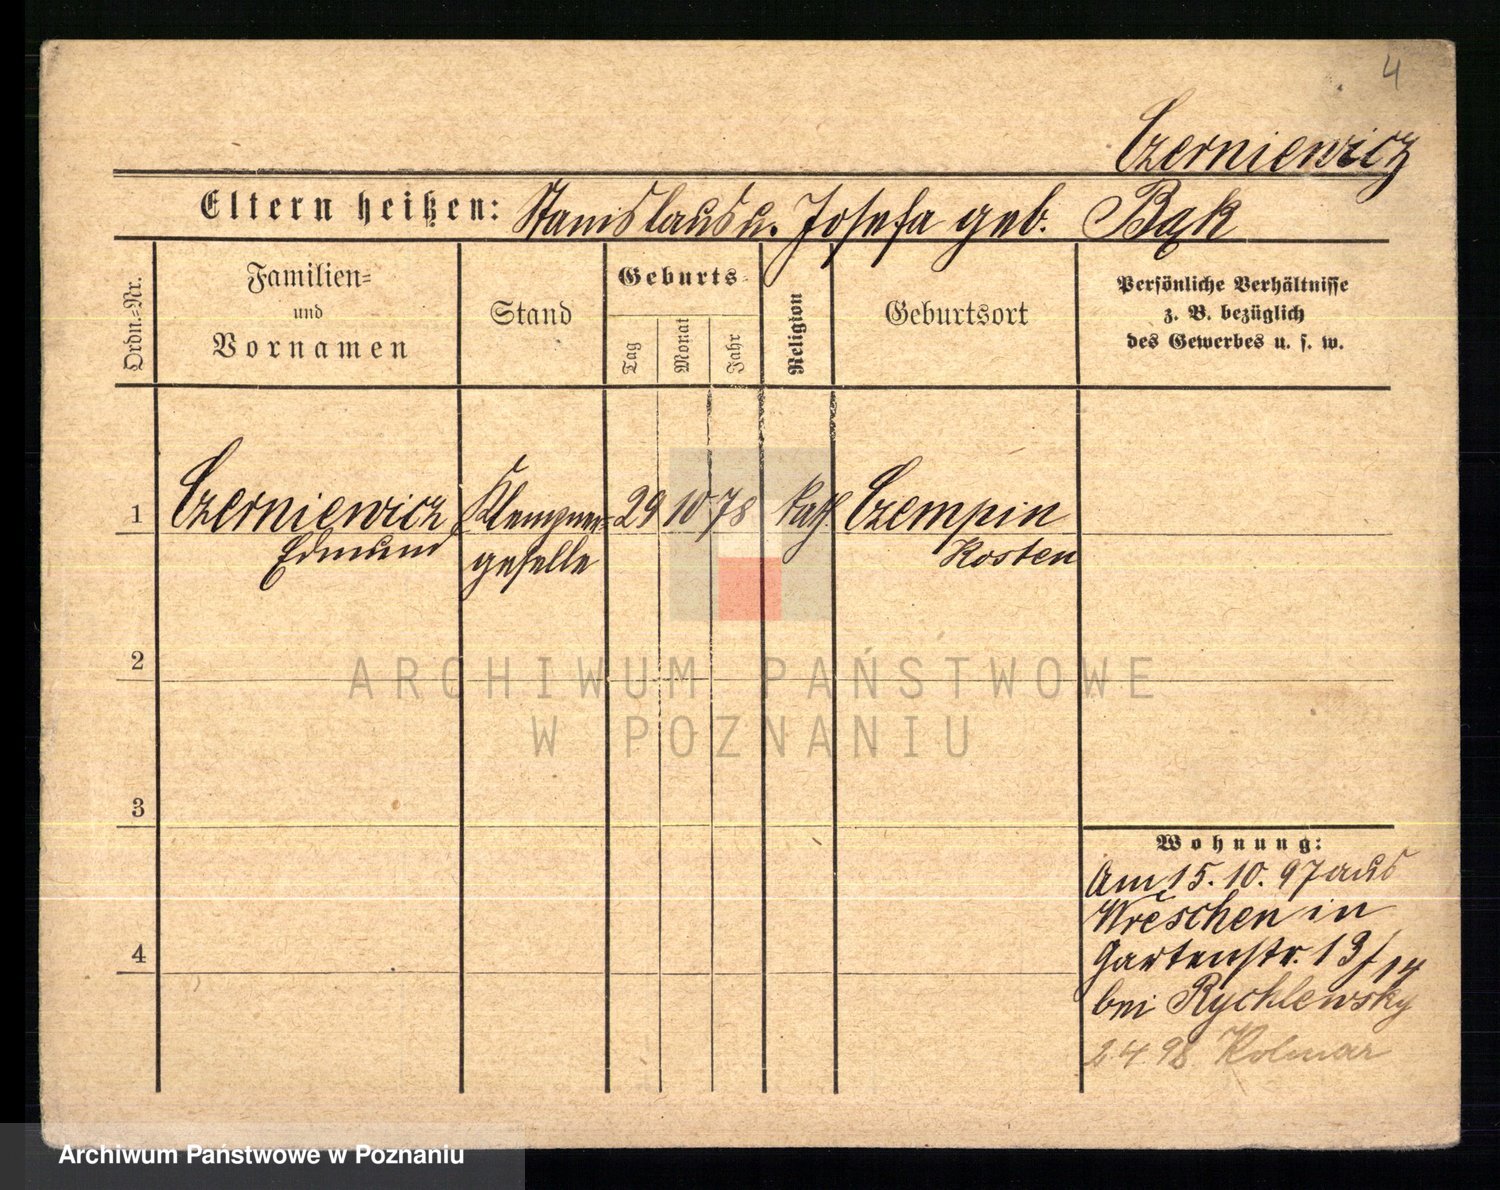 4
Czerniewicz
Eltern heißen: Stanislaus u. Josefa geb. Bąk
Ordn.=Nr.
Familien=
und
Vornamen
Stand
Geburts-
Tag
Monat
Jahr
Religion
Geburtsort
Persönliche Verhältnisse
z. B. bezüglich
des Gewerbes u. s. w.
1 Czerniewicz Klempner= 29 10 78 kath. Czempin
Edmund geselle Kosten
2
ARCHIWUM PAŃSTWOWE
W POZNANIU
3
Wohnung:
Am 15. 10. 97 aus
Wreschen in
Gartenstr. 13/14
bei Rychlewsky
2.4.98. Kolmar
4
Archiwum Państwowe w Poznaniu